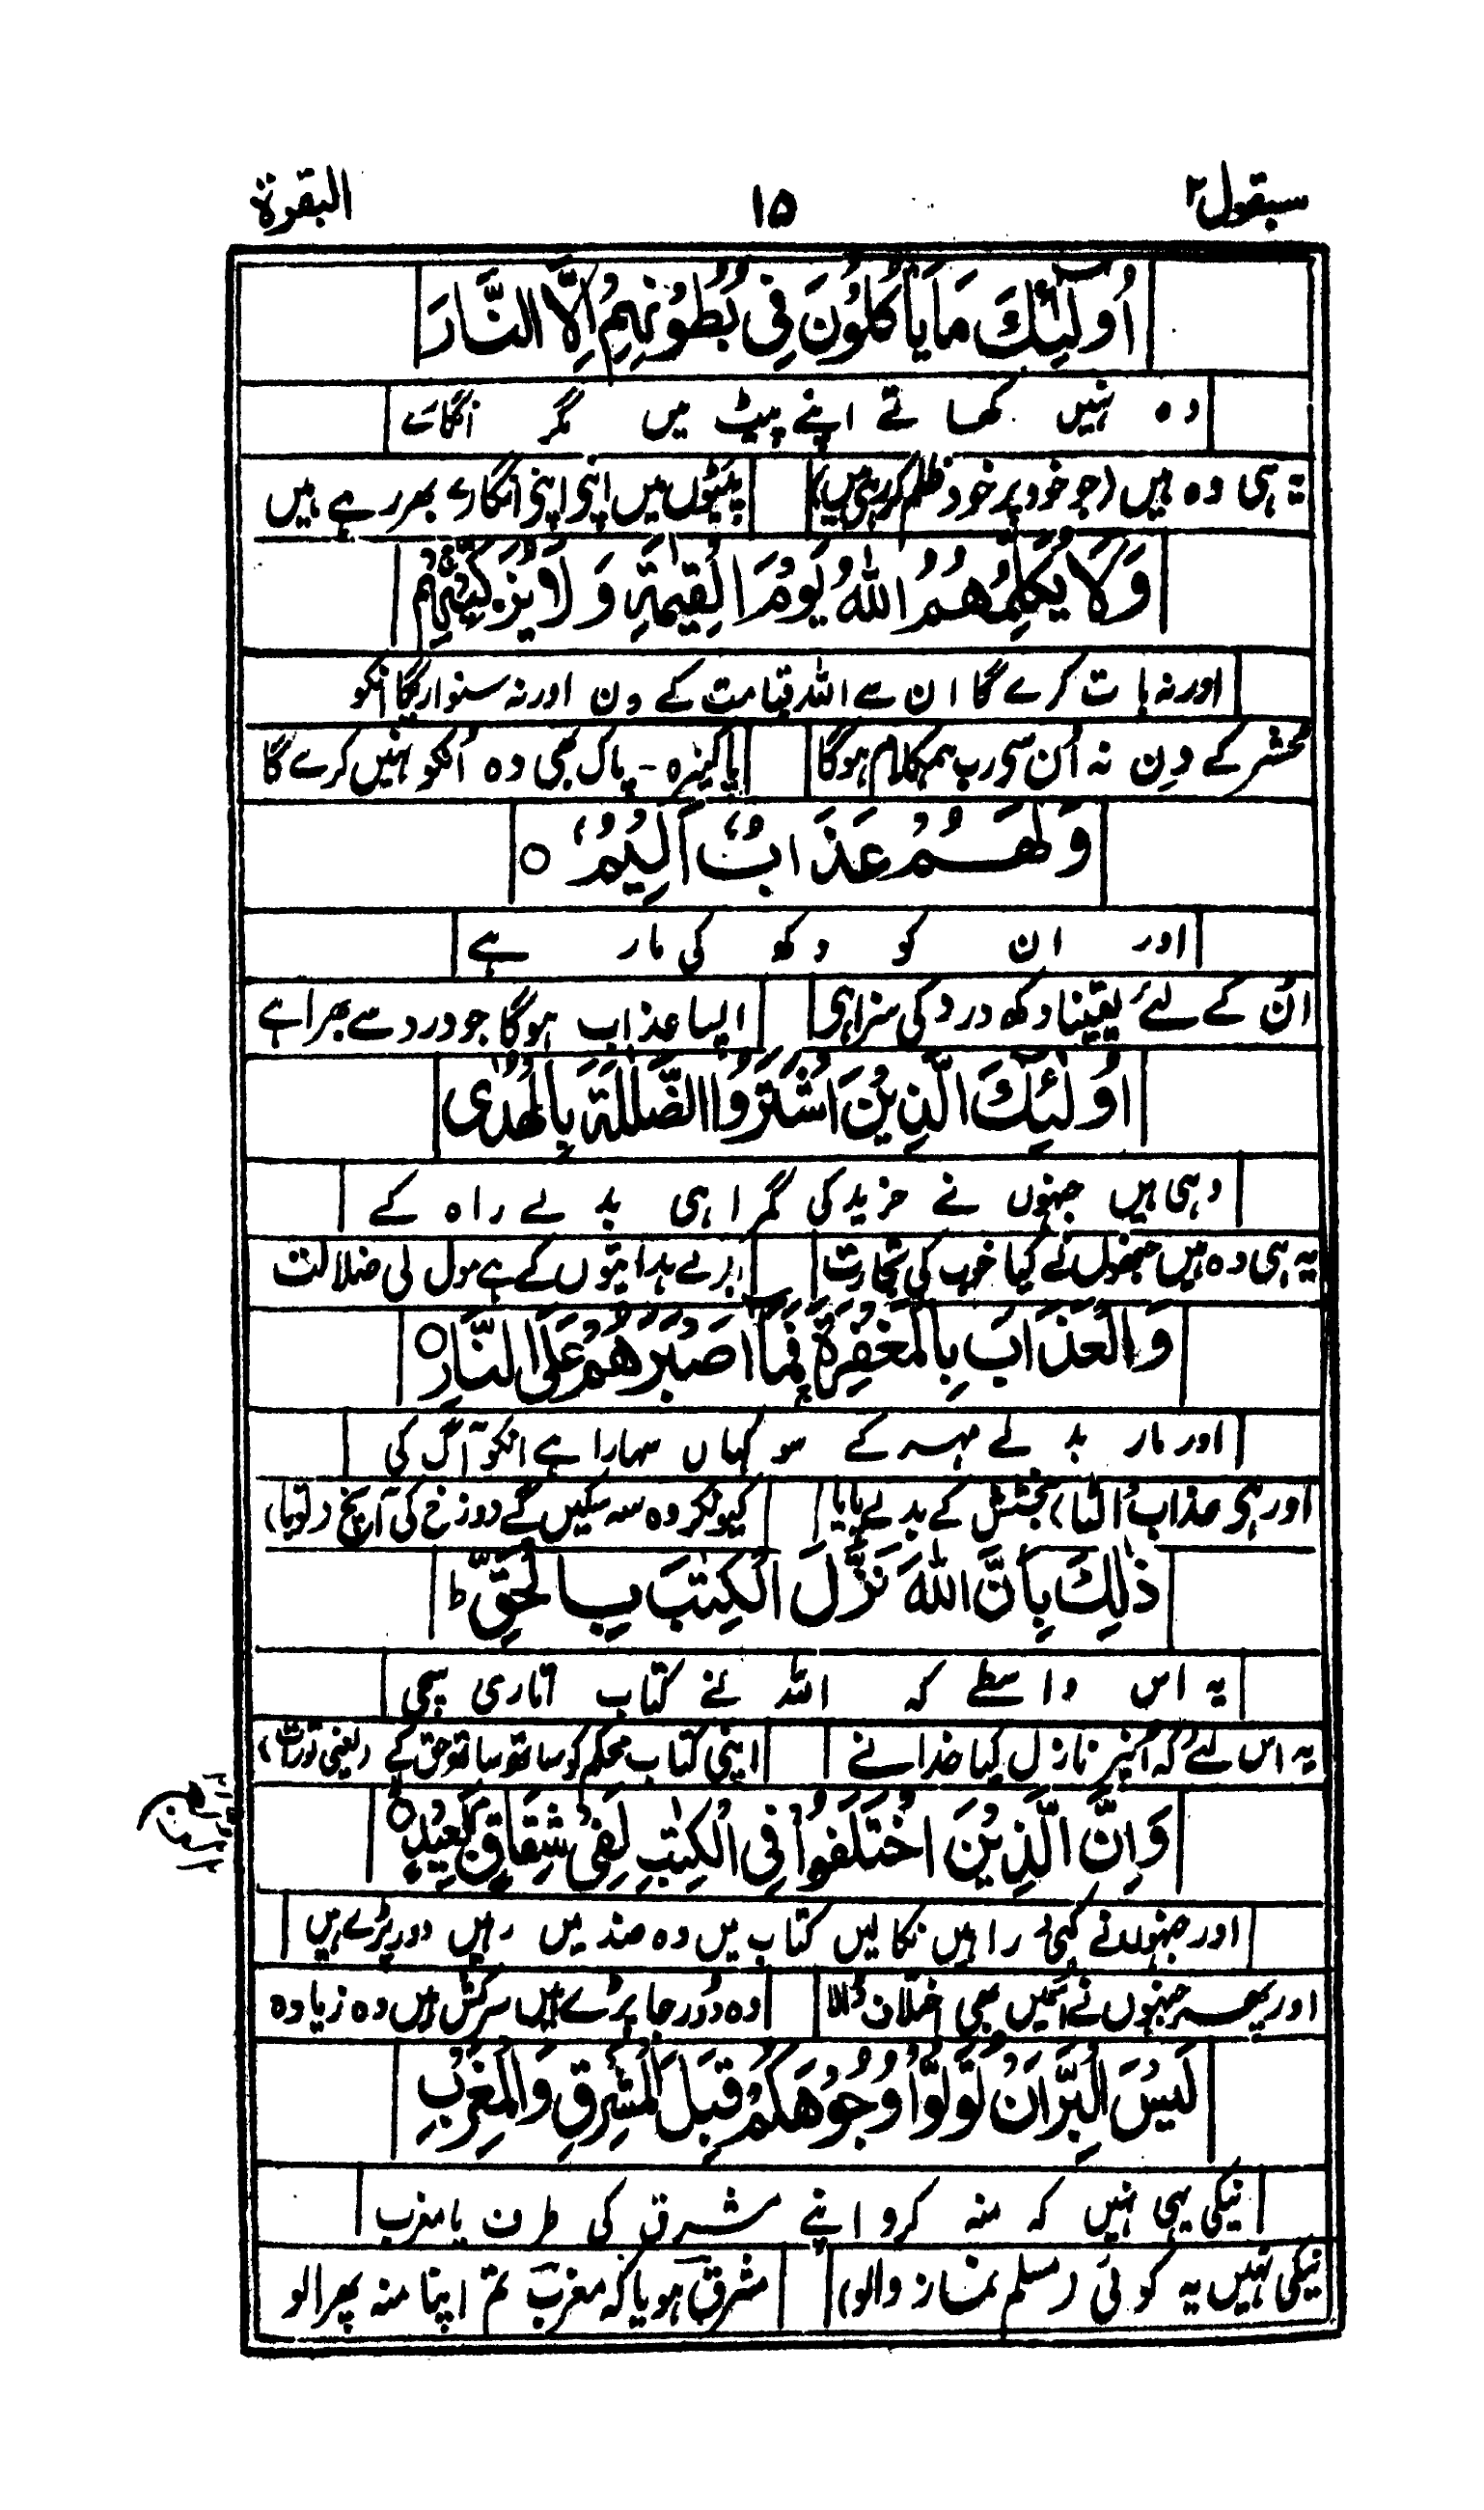 سیقول ۲ ۱۵ البقرۃ
اُولٰٓئِكَ مَا يَاْكُلُوْنَ فِىْ بُطُوْنِهِمْ اِلَّا النَّارَ
وہ نہیں کھاتے اپنے پیٹ میں مگر انگارے
یہی وہ ہیں (جو خود پر خود ظلم کر رہی ہیں) پیٹوں میں اپنی اپنی انگارے بھر رہے ہیں
وَلَا يُكَلِّمُهُمُ اللّٰهُ يَوْمَ الْقِيٰمَةِ وَلَا يُزَكِّيْهِمْ
اور نہ بات کرے گا ان سے اللہ قیامت کے دن اور نہ سنواریگا انکو
محشر کے دن نہ اُن سی رب ہمکلام ہوگا پاکیزہ - پاک بھی وہ اُنکو نہیں کرے گا
وَلَهُمْ عَذَابٌ اَلِيْمٌ ۝
اور ان کو دکھ کی مار ہے
اُن کے لئے یقینا دکھ درد کی سزا ہی ایسا عذاب ہوگا جو درد سے بھرا ہے
اُولٰٓئِكَ الَّذِيْنَ اشْتَرَوُا الضَّلٰلَةَ بِالْهُدٰى
وہی ہیں جنہوں نے خرید کی گمراہی بدلے راہ کے
یہ ہی وہ ہیں جنھوں نے کیا خوب کی تجارت بدلے ہدایتوں کے ہے مول لی ضلالت
وَالْعَذَابَ بِالْمَغْفِرَةِ فَمَآ اَصْبَرَهُمْ عَلَى النَّارِ ۝
اور مار بدلے مہر کے سو کہاں سہارا ہے انکو آگ کی
اور ہی عذاب اُلٹا، بخشش کے بدلے پایا کیونکر وہ سہ سکیں گے دوزخ کی آنچ (توبا)
ذٰلِكَ بِاَنَّ اللّٰهَ نَزَّلَ الْكِتٰبَ بِالْحَقِّ ؕ
یہ اس واسطے کہ اللہ نے کتاب اتاری سچی
یہ اس لئے کہ اُنپر نازل کیا خدا نے اپنی کتاب محکم کو ساتھ ساتھ حق کے (یعنی تورات)
وَاِنَّ الَّذِيْنَ اخْتَلَفُوْا فِى الْكِتٰبِ لَفِىْ شِقَاقٍ بَعِيْدٍ ۝
اور جنہوں نے کئی راہیں نکالیں کتاب میں وہ ضد میں رہیں دور پڑے ہیں
اور پھر جنہوں نے اُسمیں بھی اختلاف ڈالا وہ دُور جا پڑے ہیں سرکش ہیں وہ زیادہ
لَيْسَ الْبِرَّ اَنْ تُوَلُّوْا وُجُوْهَكُمْ قِبَلَ الْمَشْرِقِ وَالْمَغْرِبِ
نیکی یہی نہیں کہ منہ کرو اپنے مشرق کی طرف یا مغرب
نیکی نہیں یہ کوئی (مسلم نماز والو) مشرق ہو یا کہ مغرب تم اپنا منہ پھرالو